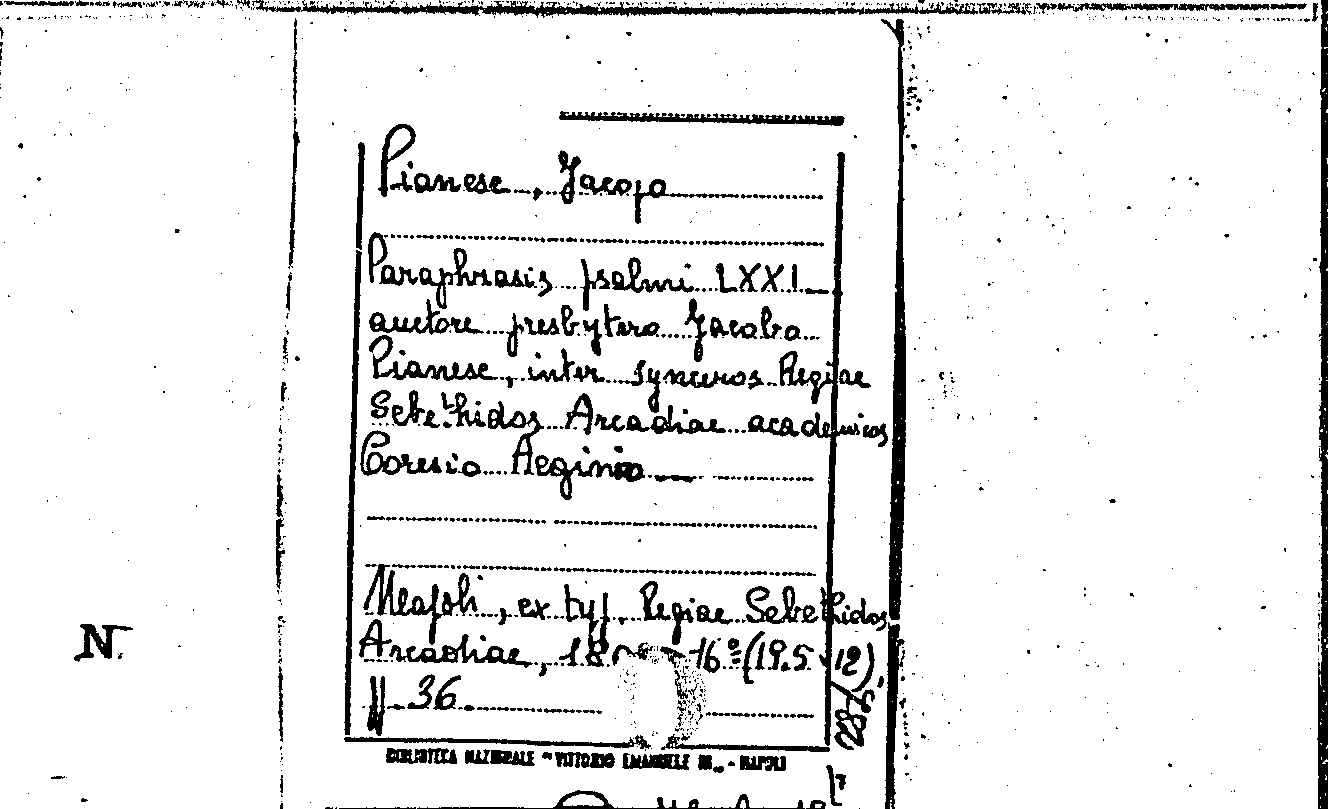 Pianese, Jacopo
Paraphrasis psalmi LXXI
auctore presbytero Jacobo
Pianese, inter synceros Regiae
Sebethidos Arcadiae academicos
Coresio Aeginio
Neapoli, ex typ. Regiae Sebethidos
Arcadiae, 16º (19.5 x 12)
pp. 36.
BIBLIOTECA NAZIONALE "VITTORIO EMANUELE III" - NAPOLI
N.